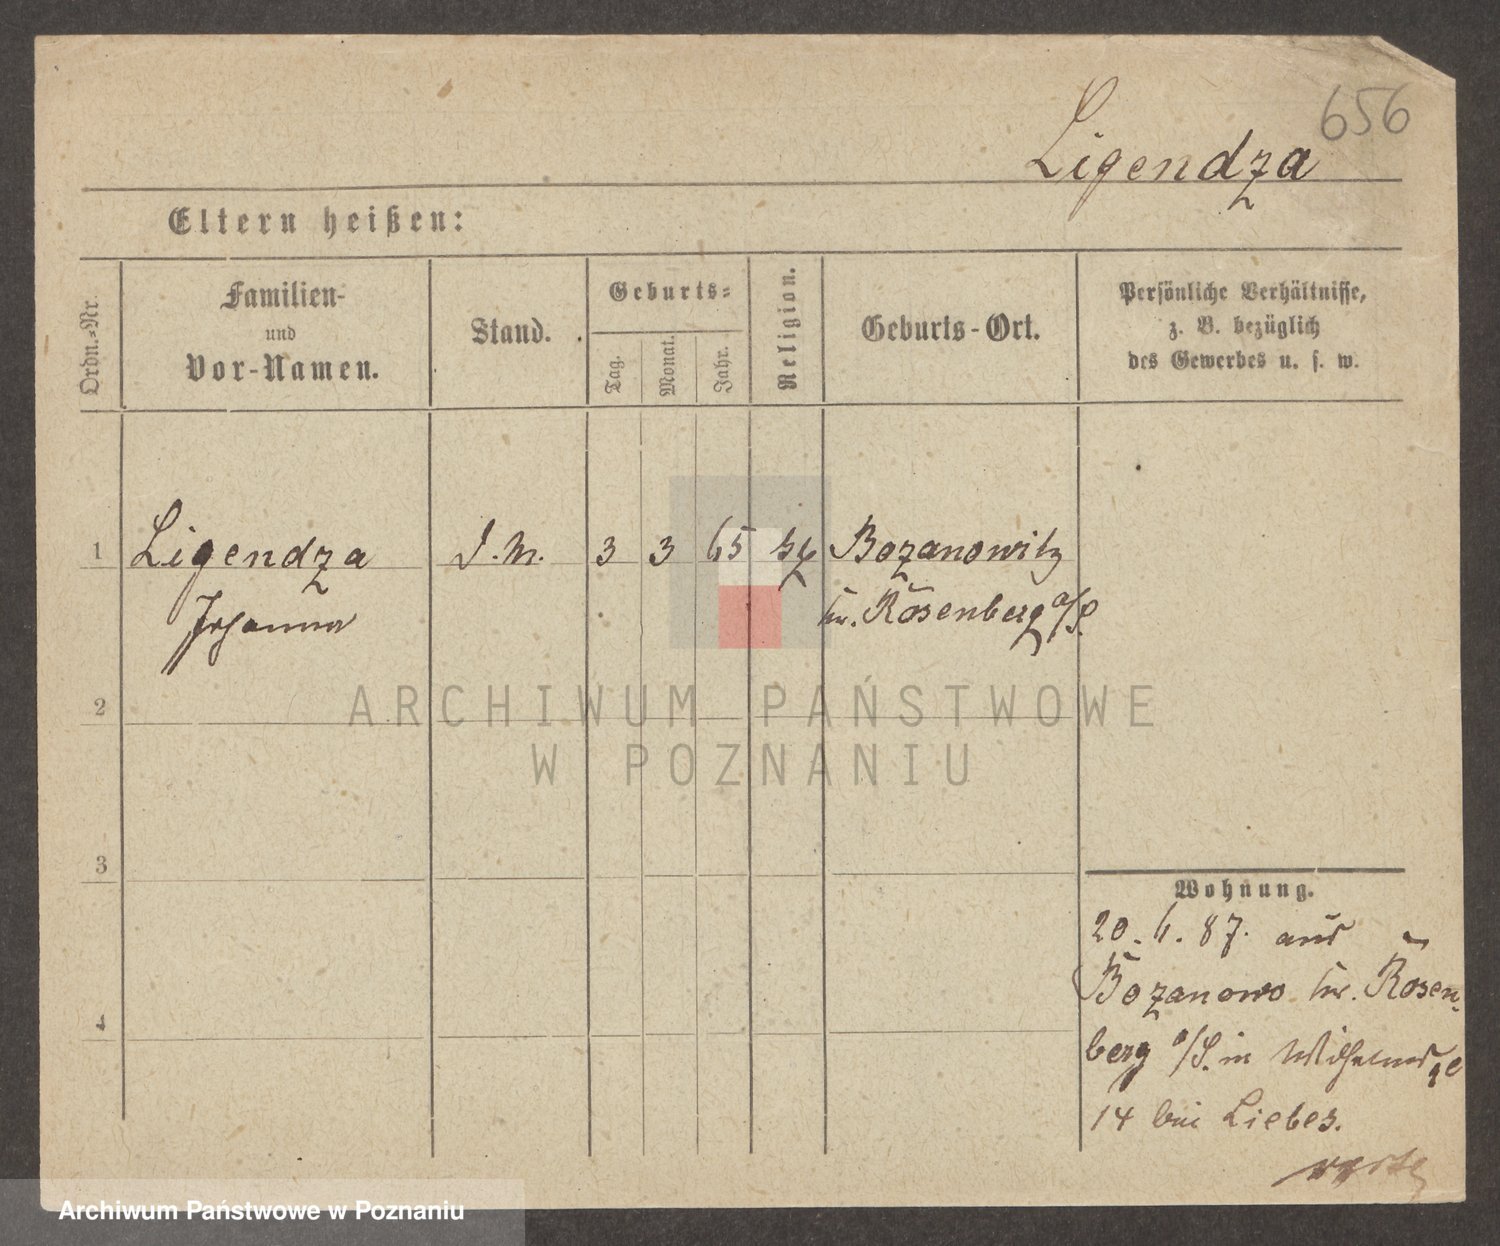 656
Ligendza
Eltern heißen:
Ordn.-Nr.
Familien-
und
Vor-Namen.
Stand.
Geburts-
Tag.
Monat.
Jahr.
Religion.
Geburts-Ort.
Persönliche Verhältnisse,
z. B. bezüglich
des Gewerbes u. s. w.
1 Ligendza 3 3 65 Bozanowitz
Johanna Kr. Rosenberg o/S.
2
ARCHIWUM PAŃSTWOWE
W POZNANIU
3
Wohnung.
20. 6. 87. aus
4
Bozanowo Kr. Rosen-
berg o/S. in
14 bei Liebes.
Archiwum Państwowe w Poznaniu